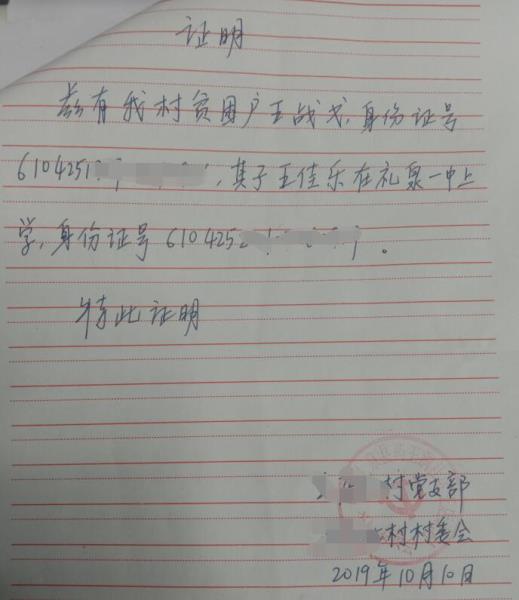 证明
兹有我村贫困户王战戈,身份证号
6104251,其子王佳乐在礼泉一中上
学,身份证号6104252。
特此证明
村党支部
村村委会
2019年10月10日